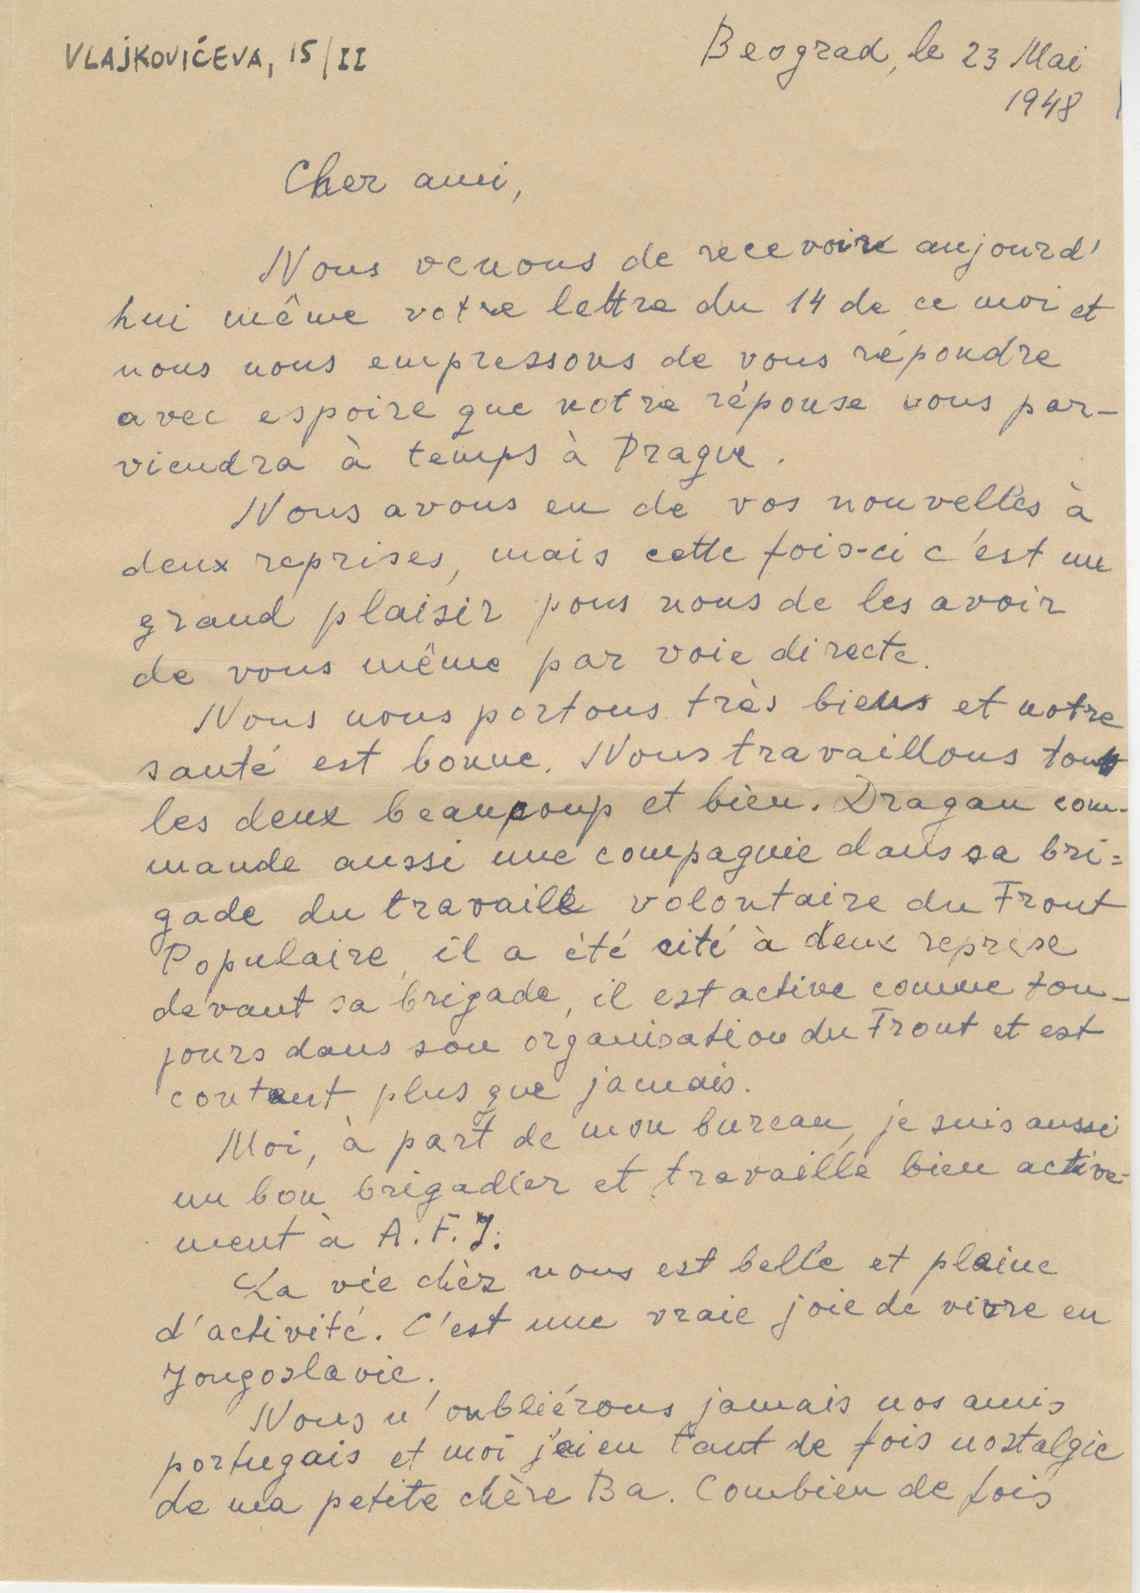 VLAJKOVIĆEVA, 15/II
Beograd, le 23 Mai
1948
Cher ami,
Nous venons de recevoire aujourd'
hui même votre lettre du 14 de ce moi et
nous nous empressons de vous répondre
avec espoire que notre réponse vous par-
viendra à temps à Prague.
Nous avons eu de vos nouvelles à
deux reprises, mais cette fois-ci c'est un
grand plaisir pous nous de les avoir
de vous même par voie directe.
Nous nous portons très biens et notre
santé est bonne. Nous travaillons tous
les deux beaucoup et bien. Dragan com-
mande aussi une compagnie dans sa bri=
gade du travaille volontaire du Front
Populaire, il a été cité à deux reprise
devant sa brigade, il est active comme tou-
jours dans son organisation du Front et est
content plus que jamais.
Moi, à part de mon bureau, je suis aussi
un bon brigadier et travaille bien active-
ment à A.F.J.
La vie chèz nous est belle et plaine
d'activité. C'est une vraie joie de vivre en
Yougoslavie.
Nous n'oubliérons jamais nos amis
portugais et moi j'ai eu tant de fois nostalgie
de ma petite chère Ba. Combien de fois